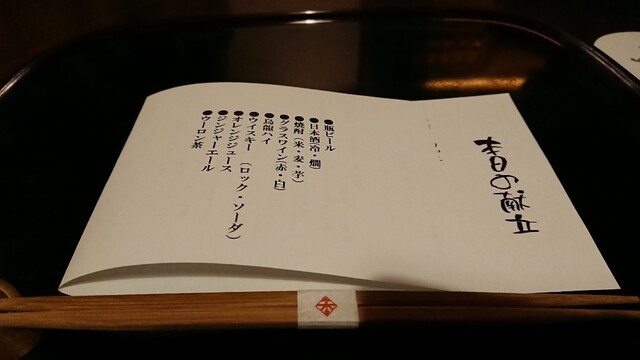 本日の献立
●瓶ビール
●日本酒(冷・燗)
●焼酎(米・麦・芋)
●グラスワイン(赤・白)
●烏龍ハイ
●ウイスキー(ロック・ソーダ)
●オレンジジュース
●ジンジャーエール
●ウーロン茶